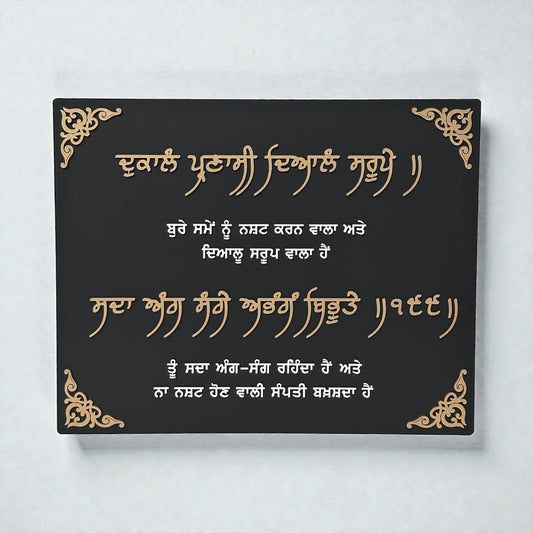 ਦੁਕਾਲੰ ਪ੍ਰਣਾਸੀ ਦਿਆਲੰ ਸਰੂਪੇ ॥
ਬੁਰੇ ਸਮੇਂ ਨੂੰ ਨਸ਼ਟ ਕਰਨ ਵਾਲਾ ਅਤੇ
ਦਿਆਲੂ ਸਰੂਪ ਵਾਲਾ ਹੈਂ
ਸਦਾ ਅੰਗ ਸੰਗੇ ਅਭੰਗੰ ਬਿਭੂਤੇ ॥੧੯੯॥
ਤੂੰ ਸਦਾ ਅੰਗ-ਸੰਗ ਰਹਿੰਦਾ ਹੈਂ ਅਤੇ
ਨਾ ਨਸ਼ਟ ਹੋਣ ਵਾਲੀ ਸੰਪਤੀ ਬਖ਼ਸ਼ਦਾ ਹੈਂ